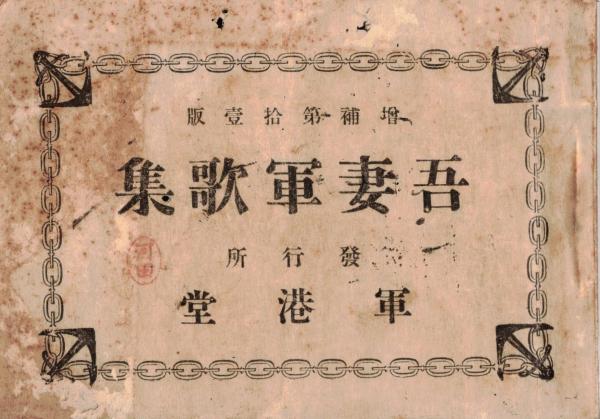 増補第拾壹版
吾妻軍歌集
發行所
軍港堂